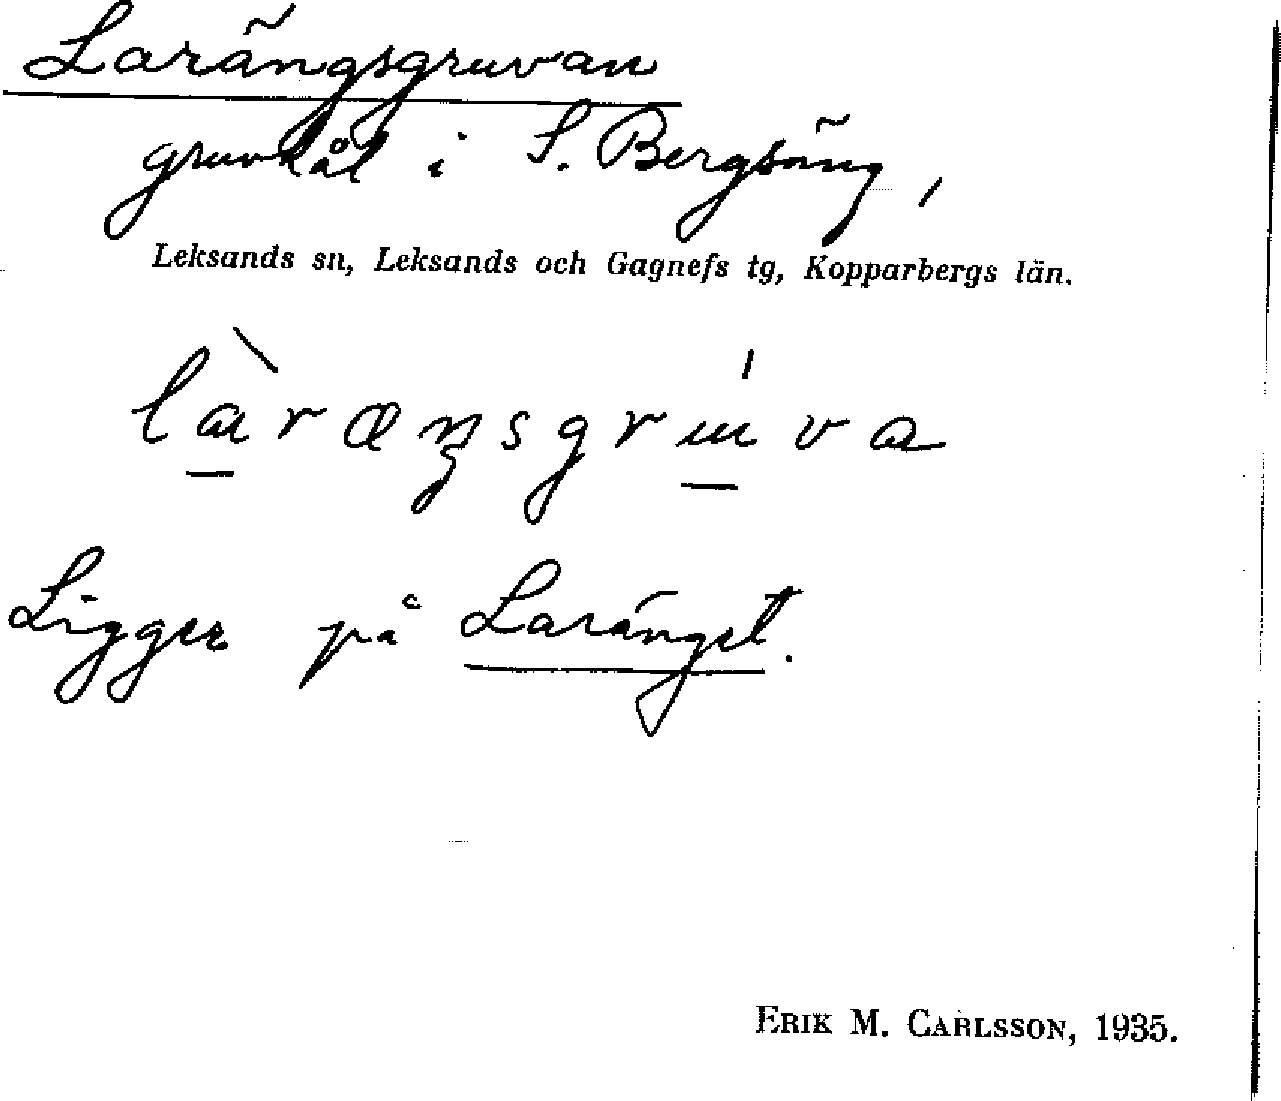 Larängsgruvan
gruvhål i S. Bergsäng,
Leksands sn, Leksands och Gagnefs tg, Kopparbergs län.
Ligger på Laränget.
ERIK M. CARLSSON, 1935.